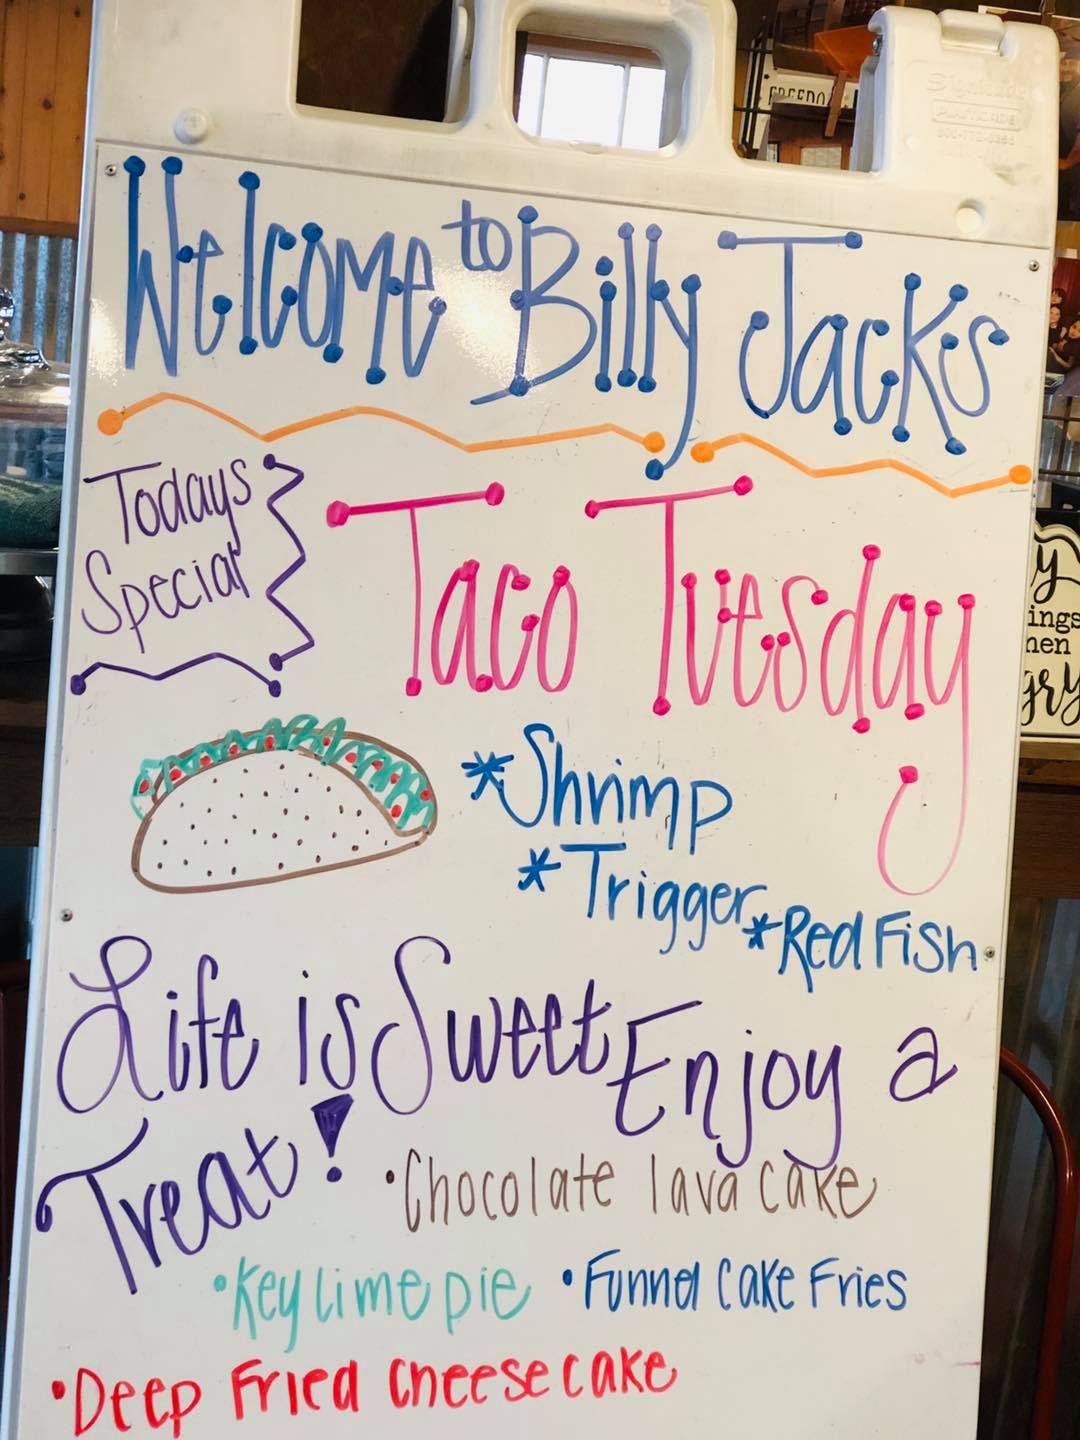 FREEDO
Signicade
PLASTICADE
Welcome to Billy Jacks
Todays
Special
Taco Tuesday
*Shrimp
*Trigger
*Red Fish
Life is Sweet Enjoy a
Treat!
•Chocolate lava cake
•Key Lime pie •Funnel Cake Fries
•Deep Fried Cheesecake
y
ings
hen
gry